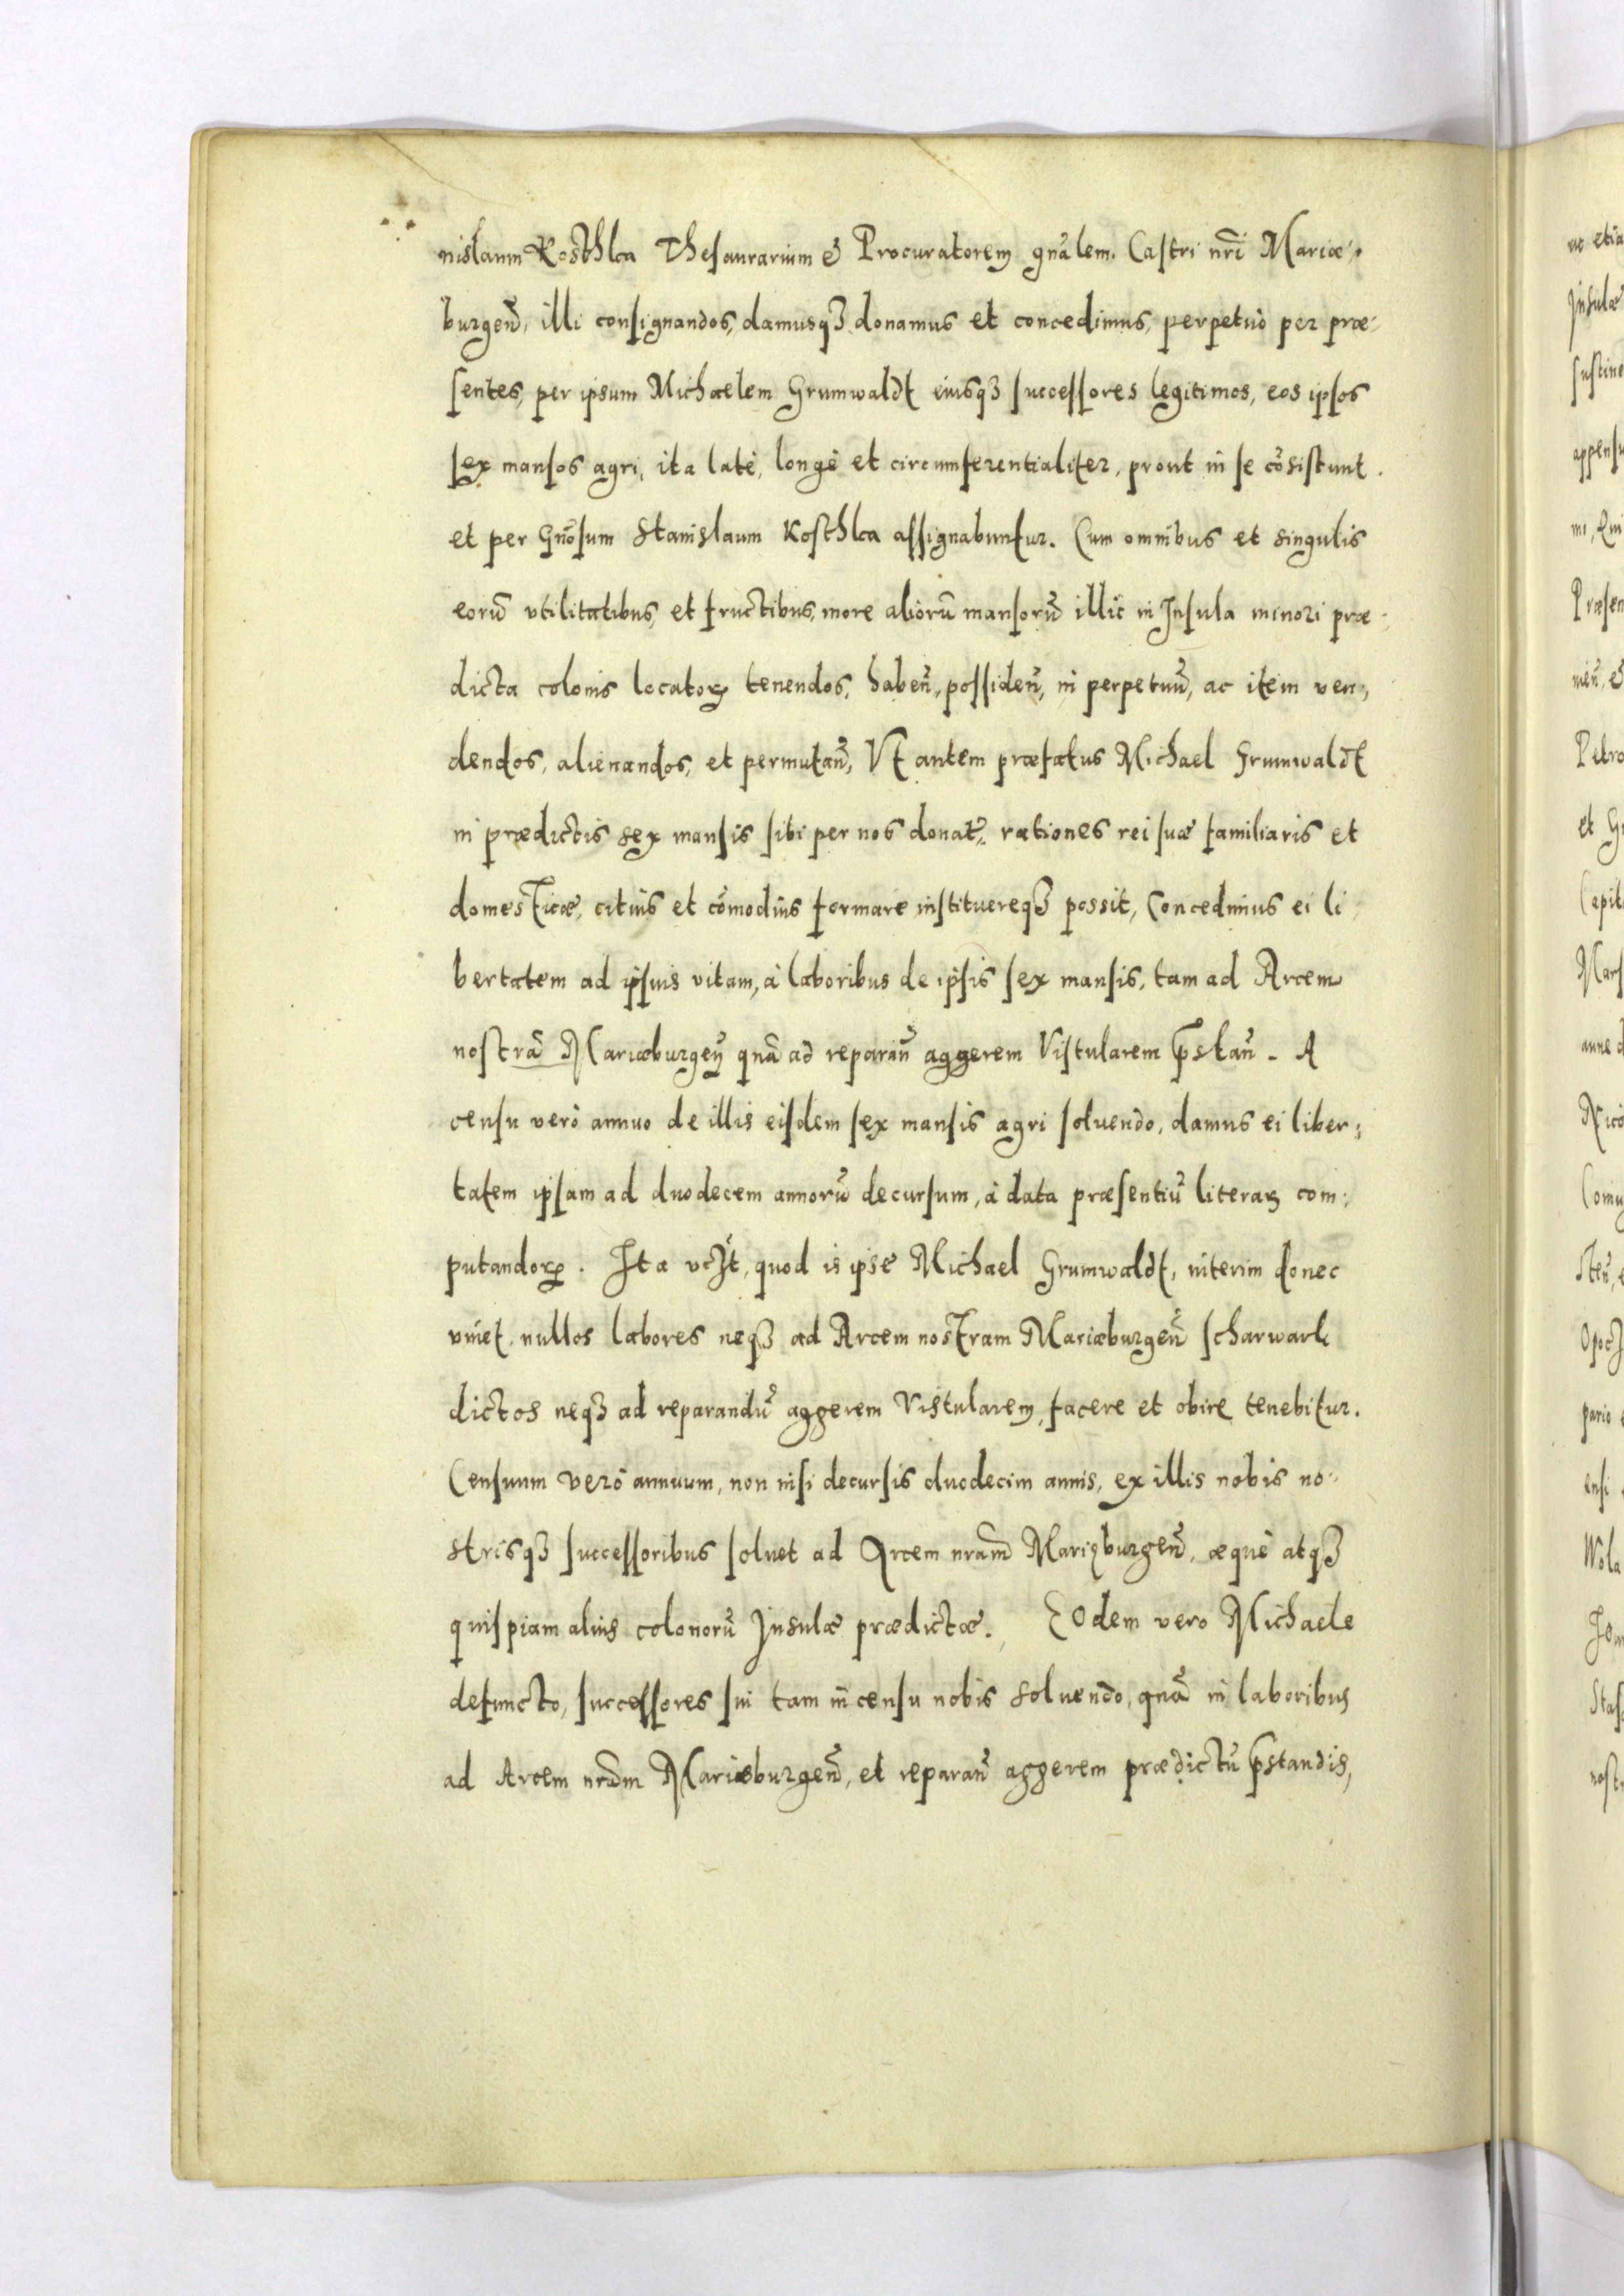 nislaum Kosthka Thesaurarium & Procuratorem gnãlem. Castri nrĩ Mariæ-
burgeñ, illi consignandos, damusqꝫ donamus et concedimus, perpetuò per præ-
sentes, per ipsum Michaelem Grumwaldt eiusqꝫ successores legitimos, eos ipsos
sex mansos agri, ita latè, longè et circumferentialiter, prout in se cõsistunt.
et per Gnõsum Stanislaum Kosthka assignabuntur. Cum omnibus et singulis
eorũ vtilitatibus, et fructibus, more aliorũ mansorũ illic in Insula minori præ-
dicta colonis locatoꝝ tenendos, habeñ, possideñ, in perpetuũ, ac item ven-
dendos, alienandos, et permutañ, Vt autem præfatus Michael Grumwaldt
in prædictis sex mansis sibi per nos donat̃. rationes rei suæ familiaris et
domesticæ, citius et cõmodius formare instituereqꝫ possit, Concedimus ei li-
bertatem ad ipsius vitam, à laboribus de ipsis sex mansis, tam ad Arcem
nostrã Mariæburgeñ quã ad reparañ aggerem Vistularem p̃stañ. A
censu verò annuo de illis eisdem sex mansis agri soluendo, damus ei liber-
tatem ipsam ad duodecem annorũ decursum, à data præsentiũ literaꝝ com-
putandoꝝ. Ita vczt, quod is ipse Michael Grumwaldt, interim donec
viuet. nullos labores neqꝫ ad Arcem nostram Mariæburgeñ scharwark
dictos neqꝫ ad reparandũ aggerem Vistularem, facere et obire tenebitur.
Censuum verò annuum, non nisi decursis duodecim annis, ex illis nobis no-
strisqꝫ successoribus soluet ad Arcem nram̃ Marięburgeñ, æquè atqꝫ
quispiam alius colonorũ Insulæ prædictæ. Eodem vero Michaele
defuncto, successores sui tam in censu nobis soluendo, quã in laboribus
ad Arcem nram̃ Mariæburgeñ, et reparañ aggerem prædictũ p̃standis,